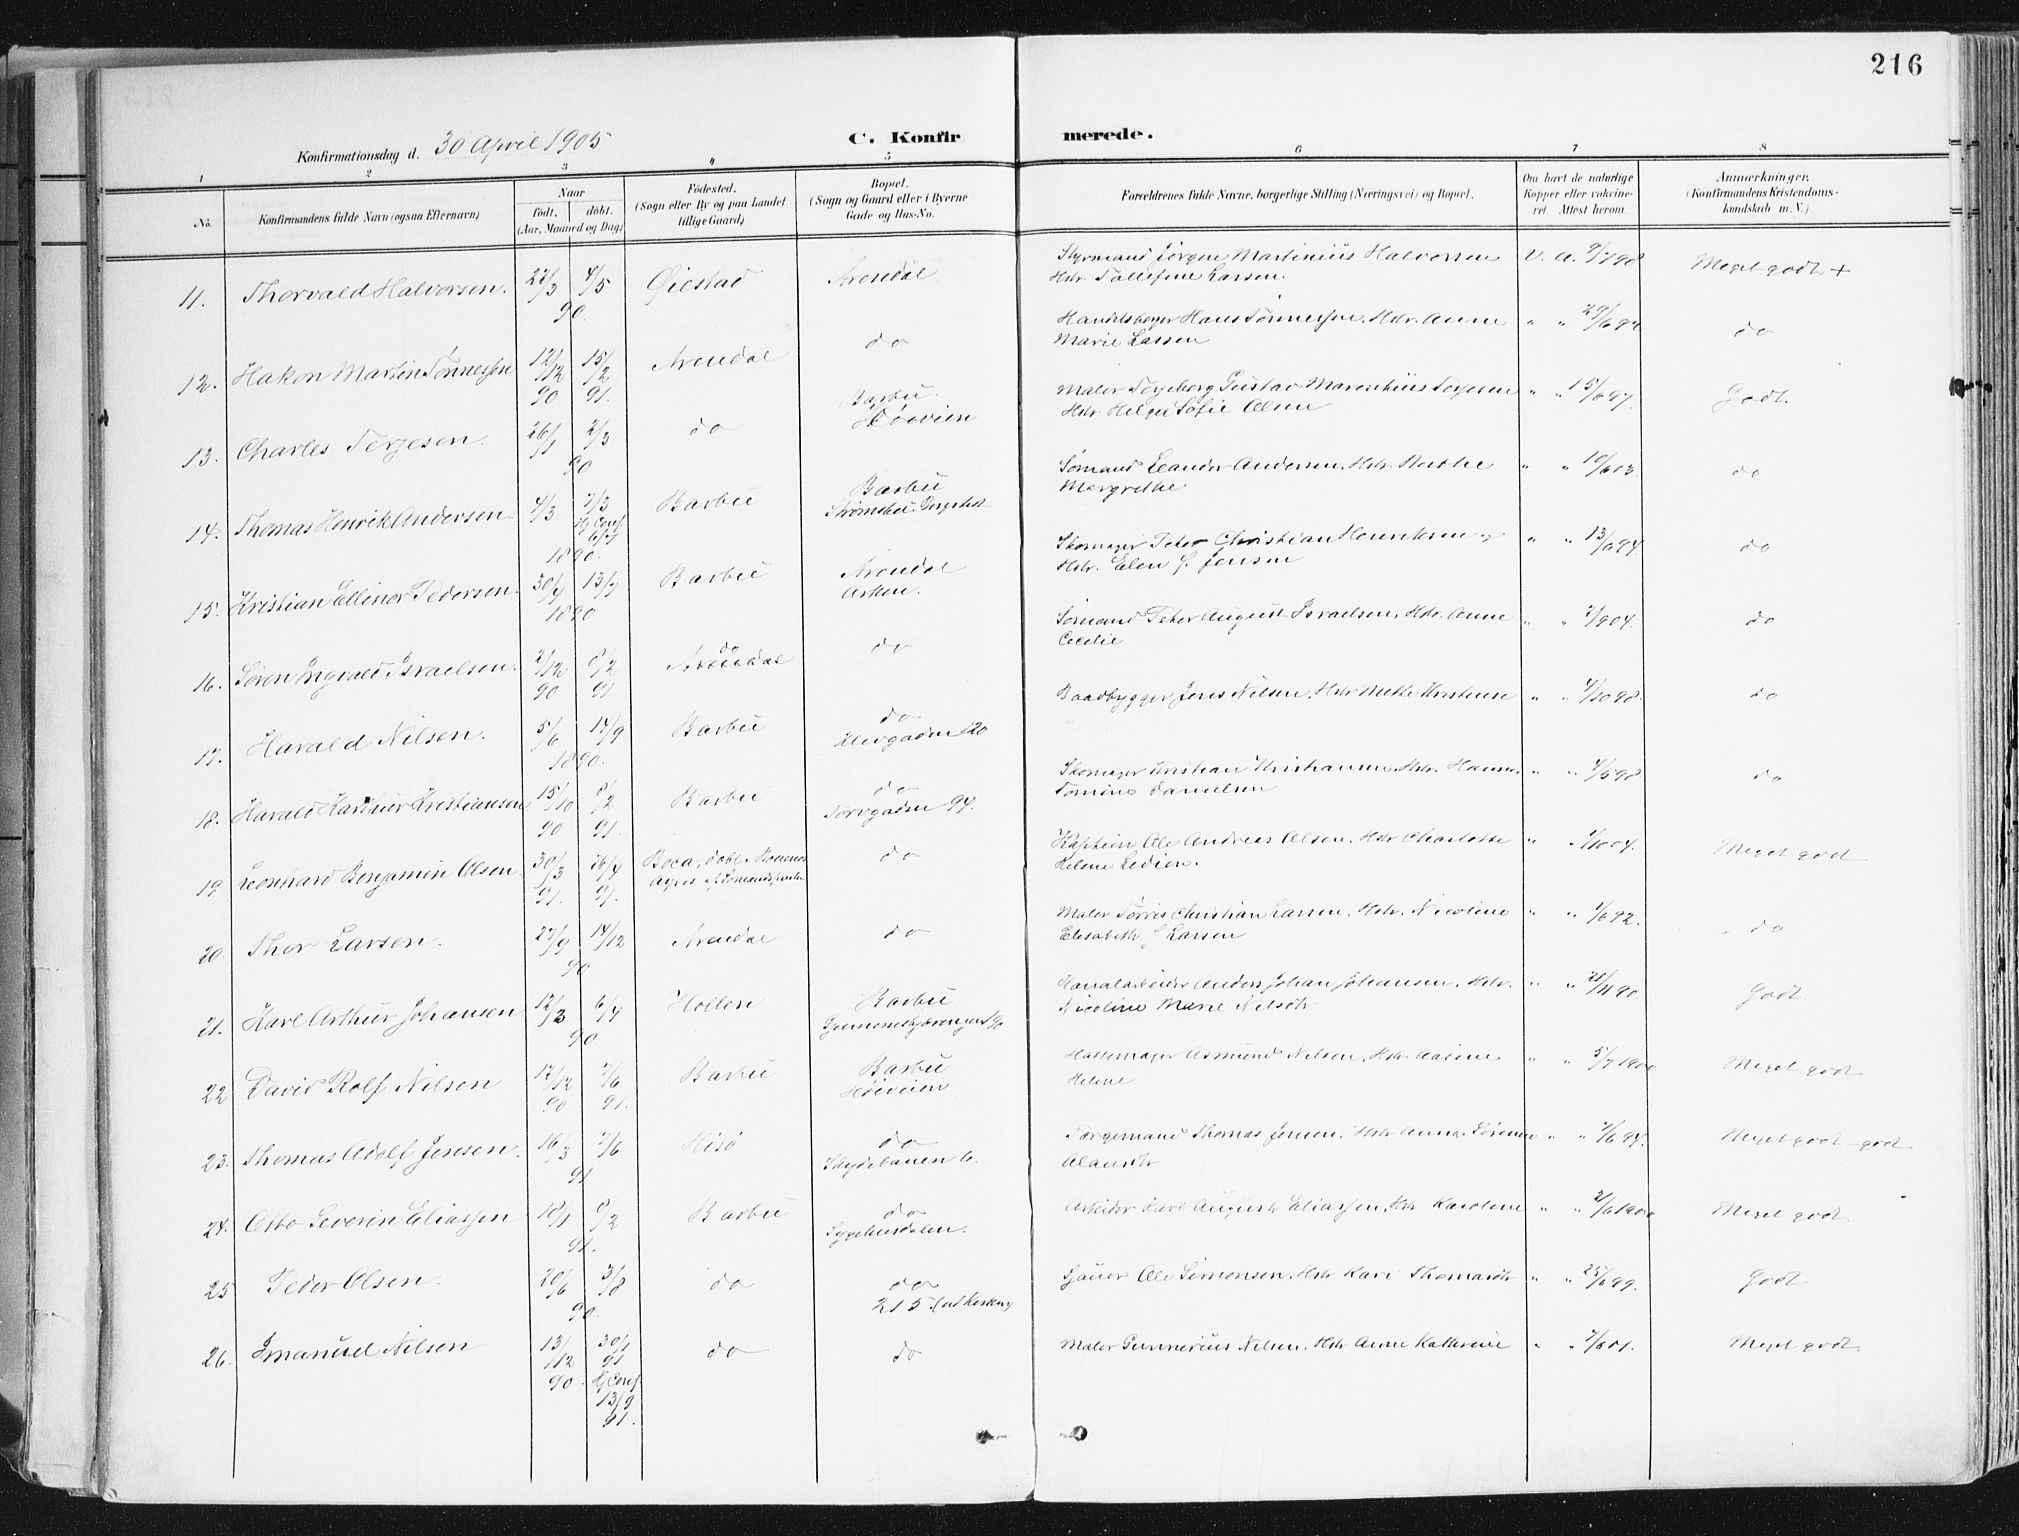 216
Konfirmationsdag d. 30 April 1905
C. Konfirmerede.
1 2 3 4 5 6 7 8
No. Konfirmandens fulde Navn (ogsaa Efternavn) Naar født, døbt. (Aar, Maaned og Dag) Fødested. (Sogn eller By og paa Landet tillige Gaard) Bopæl. (Sogn og Gaard eller i Byerne Gade og Hus-No. Forældrenes fulde Navne, borgerlige Stilling (Næringsvei) og Bopæl. Om havt de naturlige Kopper eller vaccineret Attest herom. Anmærkninger. (Konfirmandens Kristendomskundskab m. V.)
11. Thorvald Halvorsen. 22/3 4/5 90. Øiestad Arendal Styrmand Jørgen Martinius Halvorsen Hstr. Tallefine Larsen. v. a. 9/7 98 Meget godt +
12. Hakon Martin Tønnessen 12/12 90 15/2 91. Arendal do Hans Tønnessen, Hstr. Anne Marie Larsen " " 29/6 94 do
13. Charles Terjesen. 26/1 2/3 90 do Barbu. Maler Gustav Terjesen Hstr. Helga Sofie Olsen " " 15/6 97. Godt.
14. Thomas Henrik Andersen 4/3 7/3 Hj Conf. 6/7 1890. Barbu Barbu Sømand Leander Andersen, Hstr. Berthe Margrethe " " 10/6 03. do
15. Kristian Ellinor Pedersen. 30/4 13/7 1890 Barbu Arendal Skomager Peter Christian Henriksen og Hstr. Elen G. Jensen " " 13/6 94 do
16. Søren Ingvald Israelsen. 2/12 90 8/2 91 Arendal do do Sømand Peter August Israelsen, Hstr. Anne Cecilie " " 2/9 04. do
17. Harald Nilsen. 5/6 14/9 1890. Barbu do 120 Baadbygger Jens Nilsen, Hstr Mette Kristense " " 4/10 98. do
18. Harald Karthur Kristiansen 15/10 90 8/2 91. Barbu do Torvgaden 94. Skomager Kristian Kristiansen, Hstr. Hanna Tomine Danielsen " " 4/5 98 do
19 Leonhard Benjamin Olsen 30/3 91. 26/4 91. Boca, døbt. Buenos Ayres af Sømandspræsten do Kaptein Ole Andreas Olsen, Hstr Charlotte Helene Ledien. " " 1/10 04. Meget godt
20. Thor Larsen. 27/9 14/12 90 Arendal do Maler Tørris Christian Larsen, Hstr. Nicoline Elisabeth J Larsen " " 1/6 92. do
21. Karl Arthur Johansen 12/3 6/4 90. Hollen Barbu Kanalarbeider Anders Johan Johansen, Hstr. Nicoline Marie Nilsdtr " " 28/11 90. Godt.
22 David Rolf Nilsen 12/12 90 7/6 91. Barbu Barbu Høiveien Hattemager Asmund Nilsen, Hstr. Aasine Helene " " 5/7 1900 Meget godt
23. Thomas Adolf Jensen. 16/3 7/6 91 Hisø do Skydebanen 6. Færgemand Thomas Jensen, Hstr Anna Sørine Olausdtr " " 7/6 94. Meget godt - godt
24. Otto Severin Eliassen 18/1 8/2 91. Barbu do Sygehusdalen. Arbeider Karl August Eliassen, Hstr Karoline " " 2/6 1900 Meget godt.
25 Peder Olsen. 20/6 3/8 90. do do 215. (ved Kirken) Ole Simonsen, Hstr Kari Thomasdtr " " 25/6 99. Godt
26. Imanuel Nilsen 13/12 90 30/1 91 Hj Conf. 13/9 91. do do Maler Gunnerius Nilsen, Hstr Anne Kathrine " " 7/6 01. Meget godt.